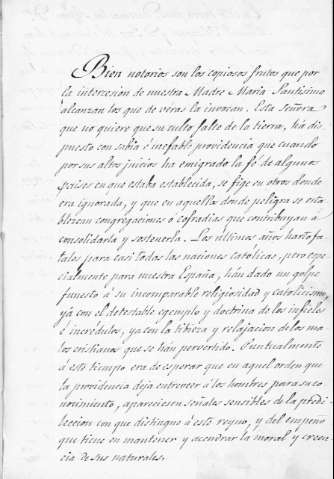 Bien notorios son los copiosos frutos que por
la intercesion de nuestra Madre Maria Santisima
alcanzan los que de veras la invocan. Esta Señora
que no quiere que su culto falte de la tierra, ha dis
puesto con sabia é inefable providencia que cuando
por sus altos juicios ha emigrado la fé de algunos
paises en que estaba establecida, se fige en otros donde
era ignorada, y que en aquellos donde peligra se esta
blezcan congregaciones ó cofradias que contribuyan á
consolidarla y sostenerla. Los últimos años harto fa
tales para casi todas las naciones católicas, pero espe
cialmente para nuestra España, han dado un golpe
funesto á su incomparable religiosidad y catolicismo,
yá con el detestable egemplo y doctrina de los infieles
é incrédulos, ya con la tibieza y relajacion de los ma
los cristianos que se han pervertido. Puntualmente
á este tiempo era de esperar que en aquel orden que
la providencia deja entrever á los hombres para su co
nocimiento, apareciesen señales sensibles de la predi
leccion con que distingue á este reyno, y del empeño
que tiene en mantener y acendrar la moral y creen
cia de sus naturales.